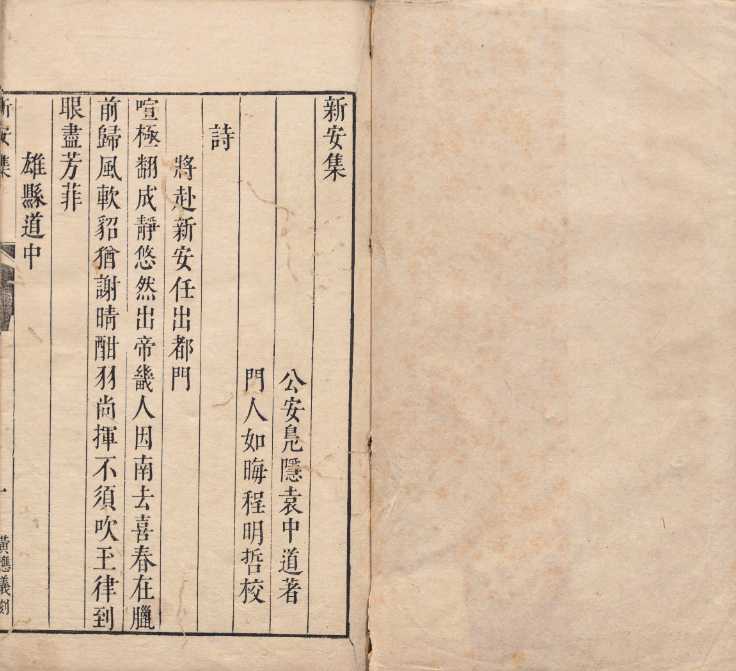 新安集
公安凫隱袁中道著
門人如晦程明哲校
詩
將赴新安任出都門
喧極翻成靜悠然出帝畿人因南去喜春在臘
前歸風軟貂猶謝晴酣羽尚揮不須吹玉律到
眼盡芳菲
雄縣道中
新安集
一
黃應義刻